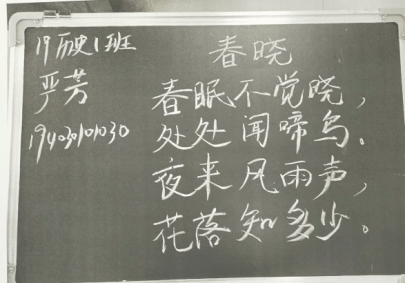 19历史1班
严芳
194030101030
春晓
春眠不觉晓，
处处闻啼鸟。
夜来风雨声，
花落知多少。